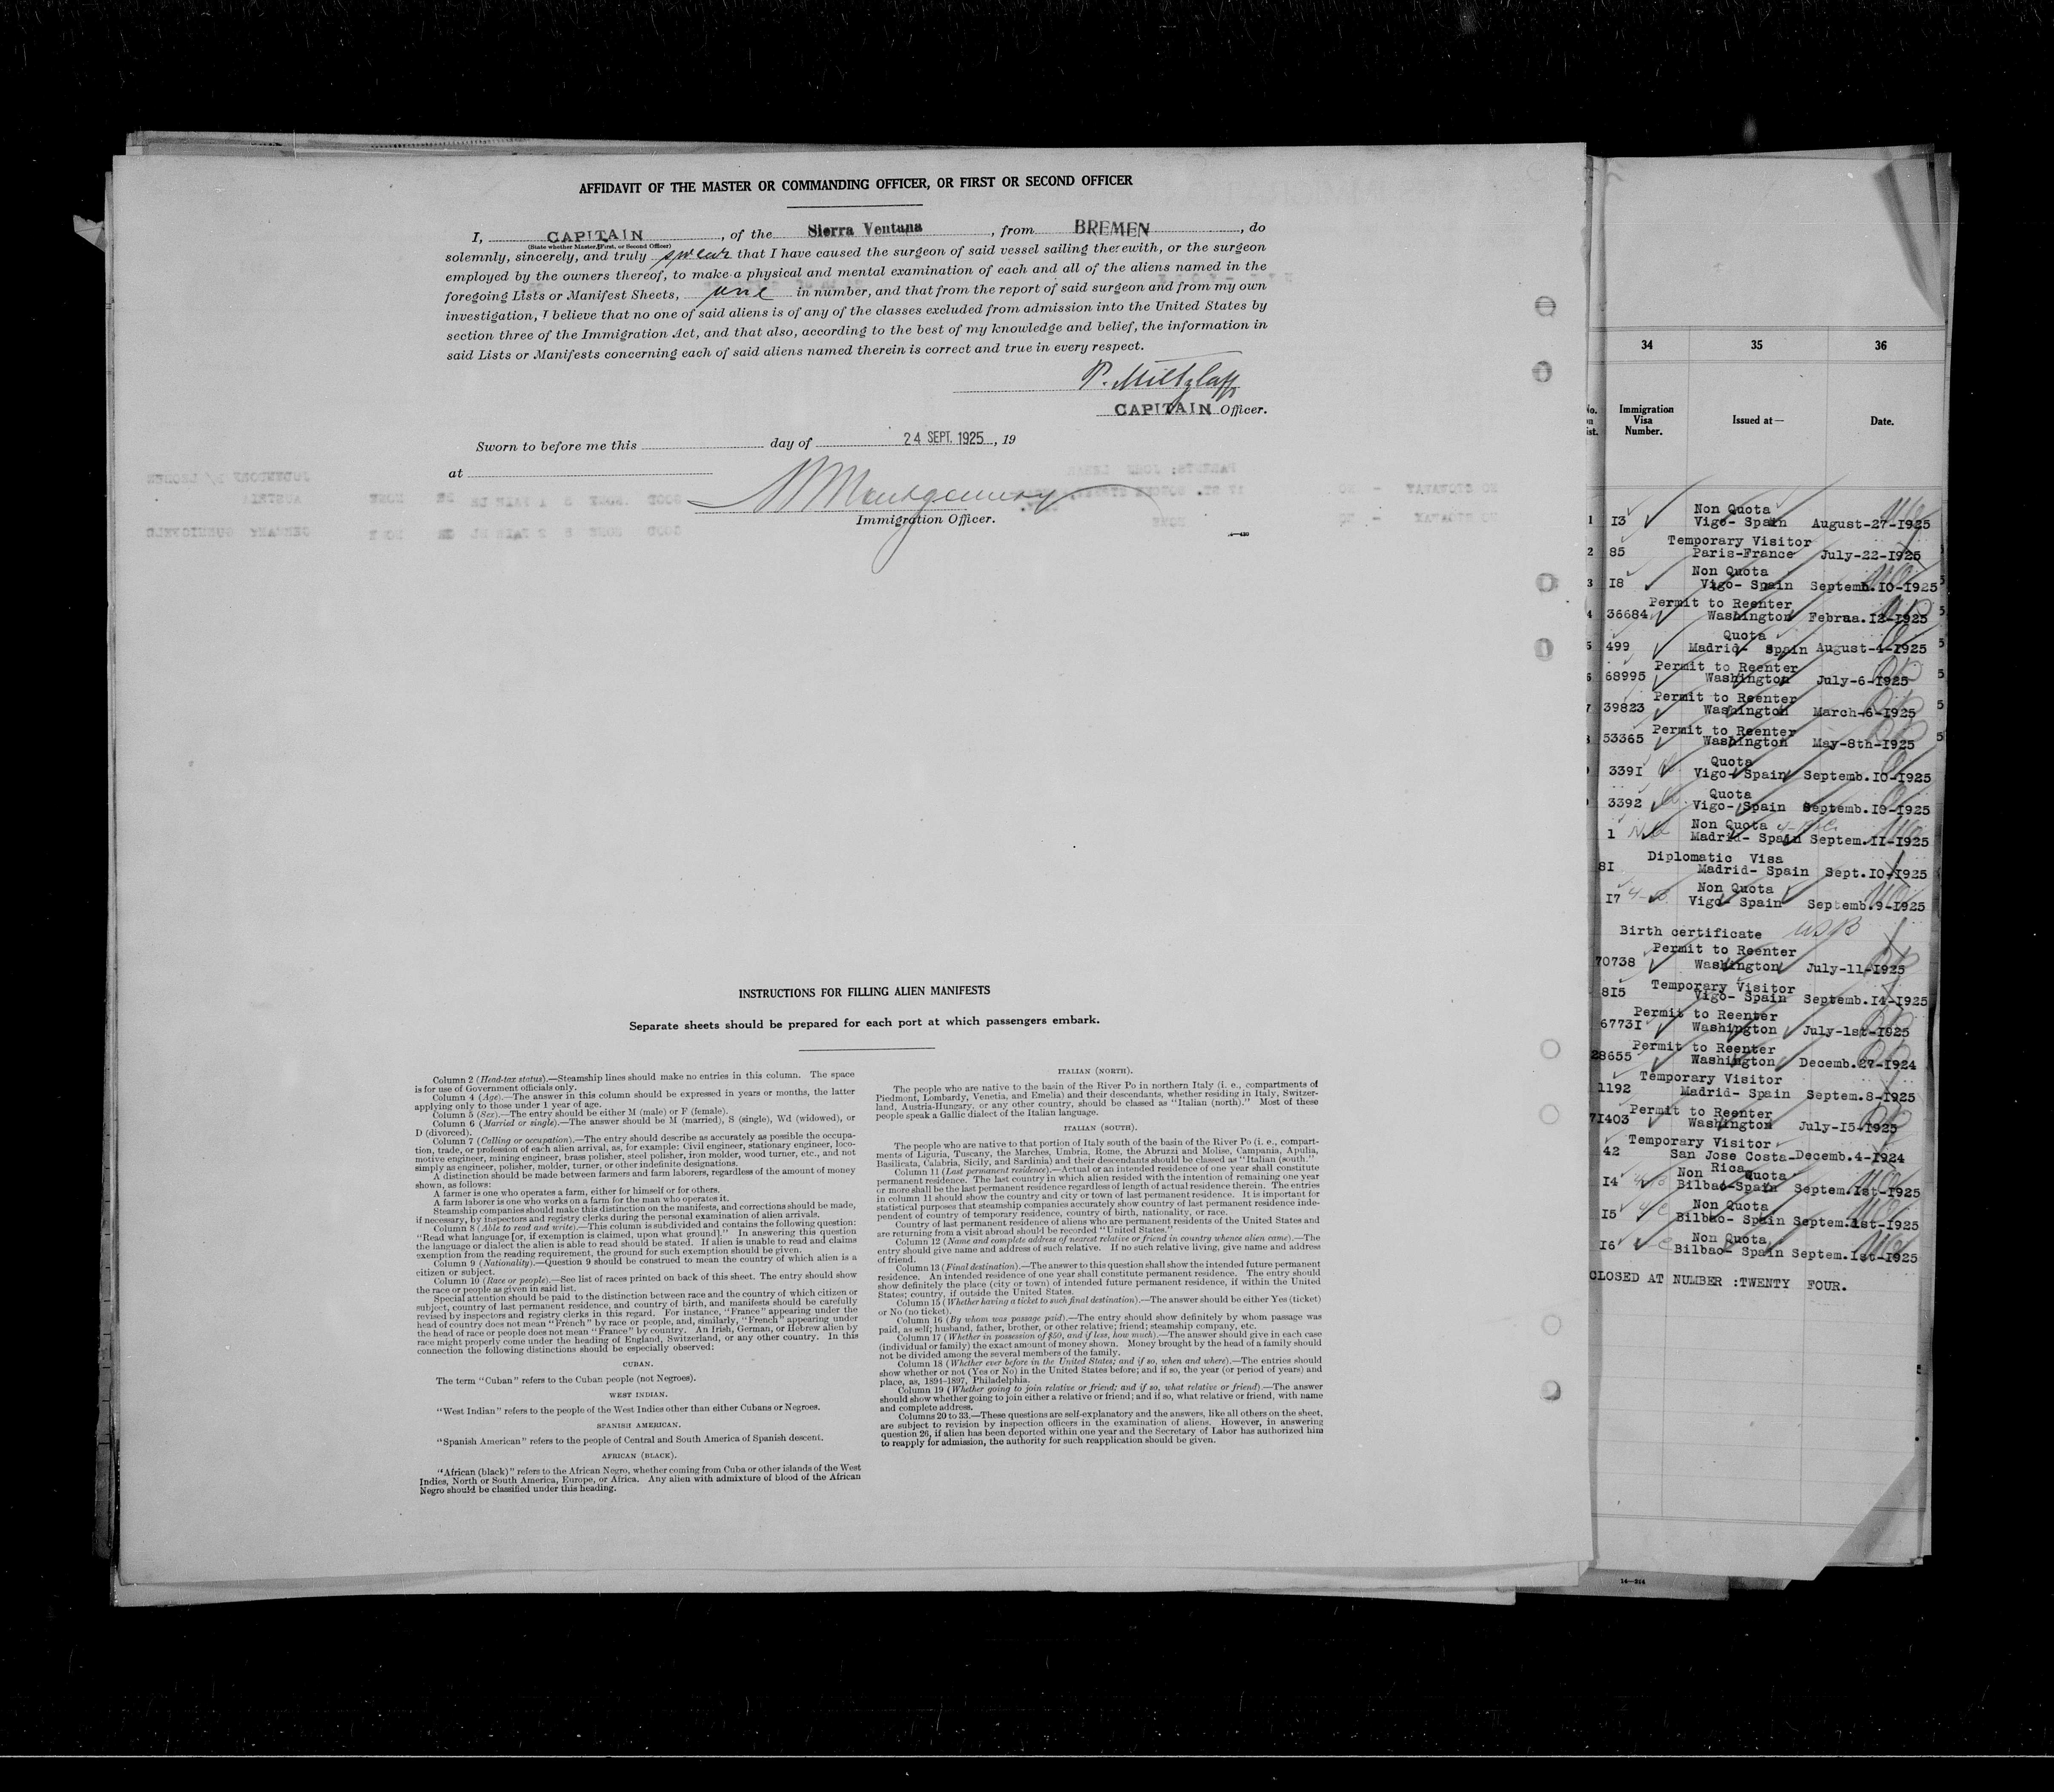 AFFIDAVIT OF THE MASTER OR COMMANDING OFFICER, OR FIRST OR SECOND OFFICER
I, CAPITAIN, of the Sierra Ventana, from BREMEN, do
(State whether Master, First, or Second Officer)
solemnly, sincerely, and truly swear that I have caused the surgeon of said vessel sailing therewith, or the surgeon
employed by the owners thereof, to make a physical and mental examination of each and all of the aliens named in the
foregoing Lists or Manifest Sheets, one in number, and that from the report of said surgeon and from my own
investigation, I believe that no one of said aliens is of any of the classes excluded from admission into the United States by
section three of the Immigration Act, and that also, according to the best of my knowledge and belief, the information in
said Lists or Manifests concerning each of said aliens named therein is correct and true in every respect.
CAPITAIN Officer.
Sworn to before me this day of 24 SEPT. 1925, 19
at
Montgomery
Immigration Officer.
INSTRUCTIONS FOR FILLING ALIEN MANIFESTS
Separate sheets should be prepared for each port at which passengers embark.
Column 2 (Head-tax status).—Steamship lines should make no entries in this column. The space
is for use of Government officials only.
Column 4 (Age).—The answer in this column should be expressed in years or months, the latter
applying only to those under 1 year of age.
Column 5 (Sex).—The entry should be either M (male) or F (female).
Column 6 (Married or single).—The answer should be M (married), S (single), Wd (widowed), or
D (divorced).
Column 7 (Calling or occupation).—The entry should describe as accurately as possible the occupa-
tion, trade, or profession of each alien arrival, as, for example: Civil engineer, stationary engineer, loco-
motive engineer, mining engineer, brass polisher, steel polisher, iron molder, wood turner, etc., and not
simply as engineer, polisher, molder, turner, or other indefinite designations.
A distinction should be made between farmers and farm laborers, regardless of the amount of money
shown, as follows:
A farmer is one who operates a farm, either for himself or for others.
A farm laborer is one who works on a farm for the man who operates it.
Steamship companies should make this distinction on the manifests, and corrections should be made,
if necessary, by inspectors and registry clerks during the personal examination of alien arrivals.
Column 8 (Able to read and write).—This column is subdivided and contains the following question:
"Read what language [or, if exemption is claimed, upon what ground]." In answering this question
the language or dialect the alien is able to read should be stated. If alien is unable to read and claims
exemption from the reading requirement, the ground for such exemption should be given.
Column 9 (Nationality).—Question 9 should be construed to mean the country of which alien is a
citizen or subject.
Column 10 (Race or people).—See list of races printed on back of this sheet. The entry should show
the race or people as given in said list.
Special attention should be paid to the distinction between race and the country of which citizen or
subject, country of last permanent residence, and country of birth, and manifests should be carefully
revised by inspectors and registry clerks in this regard. For instance, "France" appearing under the
head of country does not mean "French" by race or people, and, similarly, "French" appearing under
the head of race or people does not mean "France" by country. An Irish, German, or Hebrew alien by
race might properly come under the heading of England, Switzerland, or any other country. In this
connection the following distinctions should be especially observed:
CUBAN.
The term "Cuban" refers to the Cuban people (not Negroes).
WEST INDIAN.
"West Indian" refers to the people of the West Indies other than either Cubans or Negroes.
SPANISH AMERICAN.
"Spanish American" refers to the people of Central and South America of Spanish descent.
AFRICAN (BLACK).
"African (black)" refers to the African Negro, whether coming from Cuba or other islands of the West
Indies, North or South America, Europe, or Africa. Any alien with admixture of blood of the African
Negro should be classified under this heading.
ITALIAN (NORTH).
The people who are native to the basin of the River Po in northern Italy (i. e., compartments of
Piedmont, Lombardy, Venetia, and Emelia) and their descendants, whether residing in Italy, Switzer-
land, Austria-Hungary, or any other country, should be classed as "Italian (north)." Most of these
people speak a Gallic dialect of the Italian language.
ITALIAN (SOUTH).
The people who are native to that portion of Italy south of the basin of the River Po (i. e., compart-
ments of Liguria, Tuscany, the Marches, Umbria, Rome, the Abruzzi and Molise, Campania, Apulia,
Basilicata, Calabria, Sicily, and Sardinia) and their descendants should be classed as "Italian (south."
Column 11 (Last permanent residence).—Actual or an intended residence of one year shall constitute
permanent residence. The last country in which alien resided with the intention of remaining one year
or more shall be the last permanent residence regardless of length of actual residence therein. The entries
in column 11 should show the country and city or town of last permanent residence. It is important for
statistical purposes that steamship companies accurately show country of last permanent residence inde-
pendent of country of temporary residence, country of birth, nationality, or race.
Country of last permanent residence of aliens who are permanent residents of the United States and
are returning from a visit abroad should be recorded "United States."
Column 12 (Name and complete address of nearest relative or friend in country whence alien came).—The
entry should give name and address of such relative. If no such relative living, give name and address
of friend.
Column 13 (Final destination).—The answer to this question shall show the intended future permanent
residence. An intended residence of one year shall constitute permanent residence. The entry should
show definitely the place (city or town) of intended future permanent residence, if within the United
States; country, if outside the United States.
Column 15 (Whether having a ticket to such final destination).—The answer should be either Yes (ticket)
or No (no ticket).
Column 16 (By whom was passage paid).—The entry should show definitely by whom passage was
paid, as self; husband, father, brother, or other relative; friend; steamship company, etc.
Column 17 (Whether in possession of $50, and if less, how much).—The answer should give in each case
(individual or family) the exact amount of money shown. Money brought by the head of a family should
not be divided among the several members of the family.
Column 18 (Whether ever before in the United States; and if so, when and where).—The entries should
show whether or not (Yes or No) in the United States before; and if so, the year (or period of years) and
place, as, 1894-1897, Philadelphia.
Column 19 (Whether going to join relative or friend; and if so, what relative or friend).—The answer
should show whether going to join either a relative or friend; and if so, what relative or friend, with name
and complete address.
Columns 20 to 33.—These questions are self-explanatory and the answers, like all others on the sheet,
are subject to revision by inspection officers in the examination of aliens. However, in answering
question 26, if alien has been deported within one year and the Secretary of Labor has authorized him
to reapply for admission, the authority for such reapplication should be given.
34 35 36
Immigration Visa Number. Issued at— Date.
Non Quota
1 I3 Vigo- Spain August-27-I925
Temporary Visitor
2 85 Paris-France July-22-I925
Non Quota
3 I8 Vigo- Spain Septemb.IO-I925
Permit to Reenter
4 36684 Washington Februa.I2-I925
Quota
5 499 Madrid- Spain August-4-I925
Permit to Reenter
6 68995 Washington July-6-I925
Permit to Reenter
7 39823 Washington March-6-I925
Permit to Reenter
53365 Washington May-8th-I925
Quota
339I Vigo-Spain Septemb.IO-I925
Quota
3392 Vigo- Spain Septemb.I0-I925
Non Quota
1 Madrid- Spain Septem.II-I925
Diplomatic Visa
8I Madrid- Spain Sept.IO-I925
Non Quota
I7 Vigo- Spain Septemb.9-I925
Birth certificate USB
Permit to Reenter
70738 Washington July-11-I925
Temporary Visitor
8I5 Vigo- Spain Septemb.I4-I925
Permit to Reenter
6773I Washington July-1st-I925
Permit to Reenter
28655 Washington Decemb.27-I924
Temporary Visitor
1192 Madrid- Spain Septem.8-I925
Permit to Reenter
7I403 Washington July-I5-I925
Temporary Visitor
42 San Jose Costa-Rica Decemb.4-I924
Non Quota
I4 Bilbao-Spain Septem.1st-I925
Non Quota
I5 Bilbao- Spain Septem.1st-I925
Non Quota
I6 Bilbao- Spain Septem.1st-I925
CLOSED AT NUMBER :TWENTY FOUR.
14—214